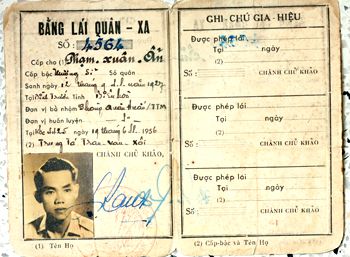 BẰNG LÁI QUÂN - XA
SỐ: 4564
Cấp cho (1) Phạm xuân Ẩn
Cấp bậc Sĩ Số quân
Sanh ngày 12 tháng 9 d.l. năm 1927
Tại Tỉnh Biên hòa
Đơn vị bổ nhậm Phòng /TTM
Đơn vị huấn luyện
Tại ngày 19 tháng 6 dl. 1956
(2) Trung tá Trần văn
CHÁNH CHỦ KHẢO,
(1) Tên Họ
GHI - CHÚ GIA - HIỆU
Được phép lái
Tại ngày
Số: CHÁNH CHỦ KHẢO,
Được phép lái
Tại ngày
Số: CHÁNH CHỦ KHẢO,
Được phép lái
Tại ngày
Số: CHÁNH CHỦ KHẢO,
(2) Cấp-bậc và Tên Họ